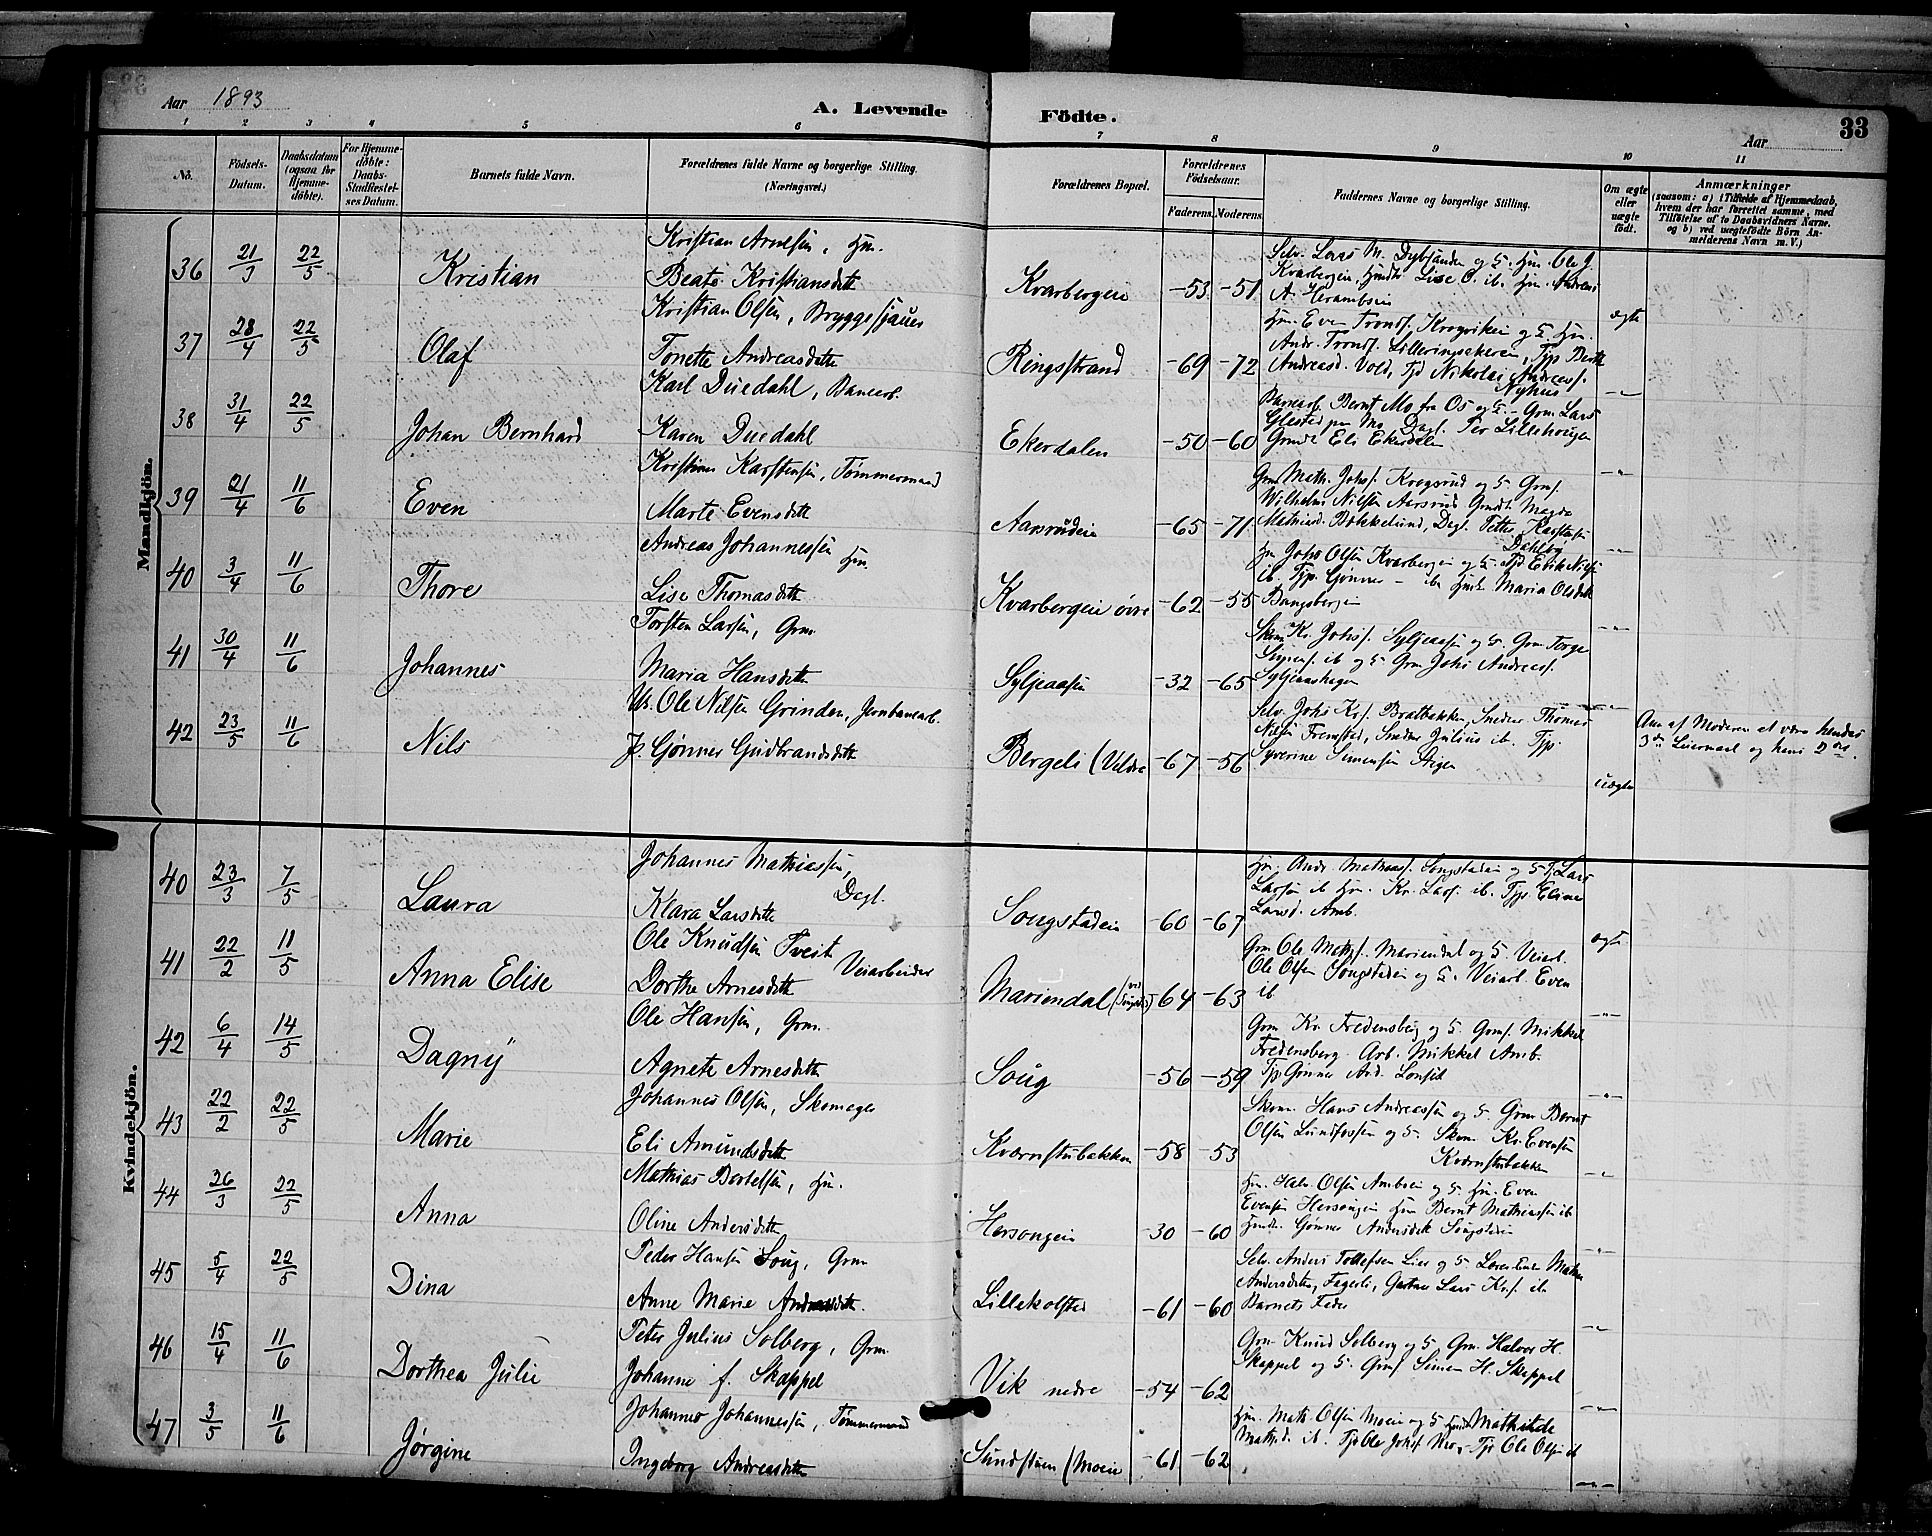 Aar 1893
A. Levende
Födte.
Aar
33
1 2 3 4 5 6 7 8 9 10 11
No.
Födsels-
Datum.
Daabsdatum
(ogsaa for
Hjemme-
döbte).
For Hjemme-
döbte:
Daabs-
Stadfæstel-
ses Datum.
Barnets fulde Navn.
Forældrenes fulde Navne og borgerlige Stilling.
(Næringsvei.)
Forældrenes Bopæl.
Forældrenes
Födselsaar.
Faderens. Moderens.
Faddernes Navne og borgerlige Stilling.
Om ægte
eller
uægte
födt.
Anmærkninger
(saasom: a) i Tilfælde af Hjemmedaab,
hvem der har forrettet samme, med
Tilföielse af to Daabsvidners Navne.
og b) ved uægtefödte Börn An-
melderens Navn m. V.)
Mandkjön.
36 21/3 22/5 Kristian
Kristian Arnesen, Hm.
Beate Kristiansdtt
Kvarbergeie -53 -51
Selv. Lars M. Dybsanden og H. Hm. Ole J.
Kvarbergeie
A. Herambseie
ægte
37 28/4 22/5 Olaf
Kristian Olsen, Bryggesjauer
Tonette Andreasdatter
Ringsstrand -69 -72
Hm. Even Trondsen Krogviken og H. Hm.
Andr. Tronds. Lilleringsakeren, Tjp Berthe
Andreasd. Vold, Tjd Nikolai Andreass.
Nyhus
-"-
38 31/4 22/5 Johan Bernhard
Karl Duedahl, Banearb.
Karen Duedahl
Ekerdalen -50 -60
Banearb. Bernt Mo fra Os og H. - Grm Lars
Glestad pr Mo Dagl. Per Lillehougen
Grmde Eli Ekerdalen
-"-
39 21/4 11/6 Even
Kristian Karstensen, Tømmermand
Marte Evensdtt
Aarsrudeie -65 -71
Grm Math. Johs. Krogsrud og H. Grm.
Wilhelm Nilsen Aarsrud Grmdt Magda
Mathiasd. Bokkelund, Dagl. Petter Karstensen
Dahlby
-"-
40 3/4 11/6 Thore
Andreas Johannessen Hm.
Lise Thomasdtt
Kvarbergeie övre -62 -55
Hm Johs Olsen Kvarbergeie og H. Tjd Erik Nils.
ib. Tjp. Gonner - ib Hmdt Maria Olsdtt
Bangsbergeie
-"-
41 30/4 11/6 Johannes
Torsten Larsen, Grm.
Maria Hansdtt
Syljeaasen -32 -65
Skom Kr. Johs. Syljeaasen og H. Grm Torge
Simens. ib og H. Grm Johs Andreass.
Syljeaashagen
-"-
42 23/5 11/6 Nils
Uk. Ole Nilsen Grinden, Jernbanearb.
Jp. Gønner Gudbrandsdtt
Bergeli (Veldre -67 -56
Selv. Johs Kr. Bratbakken, Snedker Thomas
Nilsen Fremstad, Snedker Julius ib. Tjp.
Syverine Simensen Stigen
uægte
Anm. af Moderen at være hendes
3die Leiermaal og hans 2det.
Kvindekjön.
40 23/3 7/5 Laura
Johannes Mathiassen,
Dagl.
Klara Larsdtt
Sougstadeie -60 -67
Hm. Andr. Mathiass. Sougstadeie og H. Tj. Lars
Larsen ib Hm. Kr. Lars. ib. Tjp. Eline
Larsd. Amb.
ægte
41 22/2 11/5 Anna Elise
Ole Knudsen Tveit
Veiarbeider
Dorthe Arnesdtt
Mariendal -64 -63
Grm Ole Maths. Mariendal og H. Veiarb.
Ole Olsen Sougstadeie og H. Veiarb. Even
ib
-"-
42 6/4 14/5 Dagny
Ole Hansen, Grm.
Agnete Arnesdtt
Soug -56 -59
Grm Kr Fredensberg og H. Grms. Mikkel
Fredensberg. Arb. Mikkel Amb.
Tjp Gonner And. Lonset
-"-
43 22/2 22/5 Marie
Johannes Olsen, Skomager
Eli Amundsdtt
Kværnstubakken -58 -53
Skom. Hans Andreassen og H. Grm Bernt
Olsen Lundfossen og H. Skom. Kr. Evensen
Kværnstubakken
-"-
44 26/3 22/5 Anna
Mathias Bertelsen, Hm.
Oline Andersdtt
Hersougeie -30 -60
Hm. Halv. Olsen Ambseie og H. Hm. Even
Evensen Hersougeie Hm Bernt Mathiassen ib.
Hmdt. Gonner Andersdatt Sougstadeie
-"-
45 5/4 22/5 Dina
Peder Hansen Soug, Grm
Anne Marie Andreasdtt.
Lillekolstad -61 -60
Selv. Anders Tollefsen Lier og H. Mathea
Andersdatter, Fagerli, Gartner Lars Kr. ib
Barnets Fader
-"-
46 15/4 11/6 Dorthea Julie
Peter Julius Solberg, Grm.
Johanne f. Skappel
Vik nedre -54 -62
Grm. Knud Solberg og H. Grm. Halvor H.
Skappel og H. Grms Simen H. Skappel
-"-
47 3/5 11/6 Jørgine
Johannes Johannessen, Tømmermand
Ingeborg Andreasdtt
Sundstuen (Moeie -61 -62
Hm. Math. Olsen Moeie og H. Hmdt Mathilde
Mathisd. ib. Tjd Ole Johs. Mo, Tjp. Ole Olsen ib
-"-